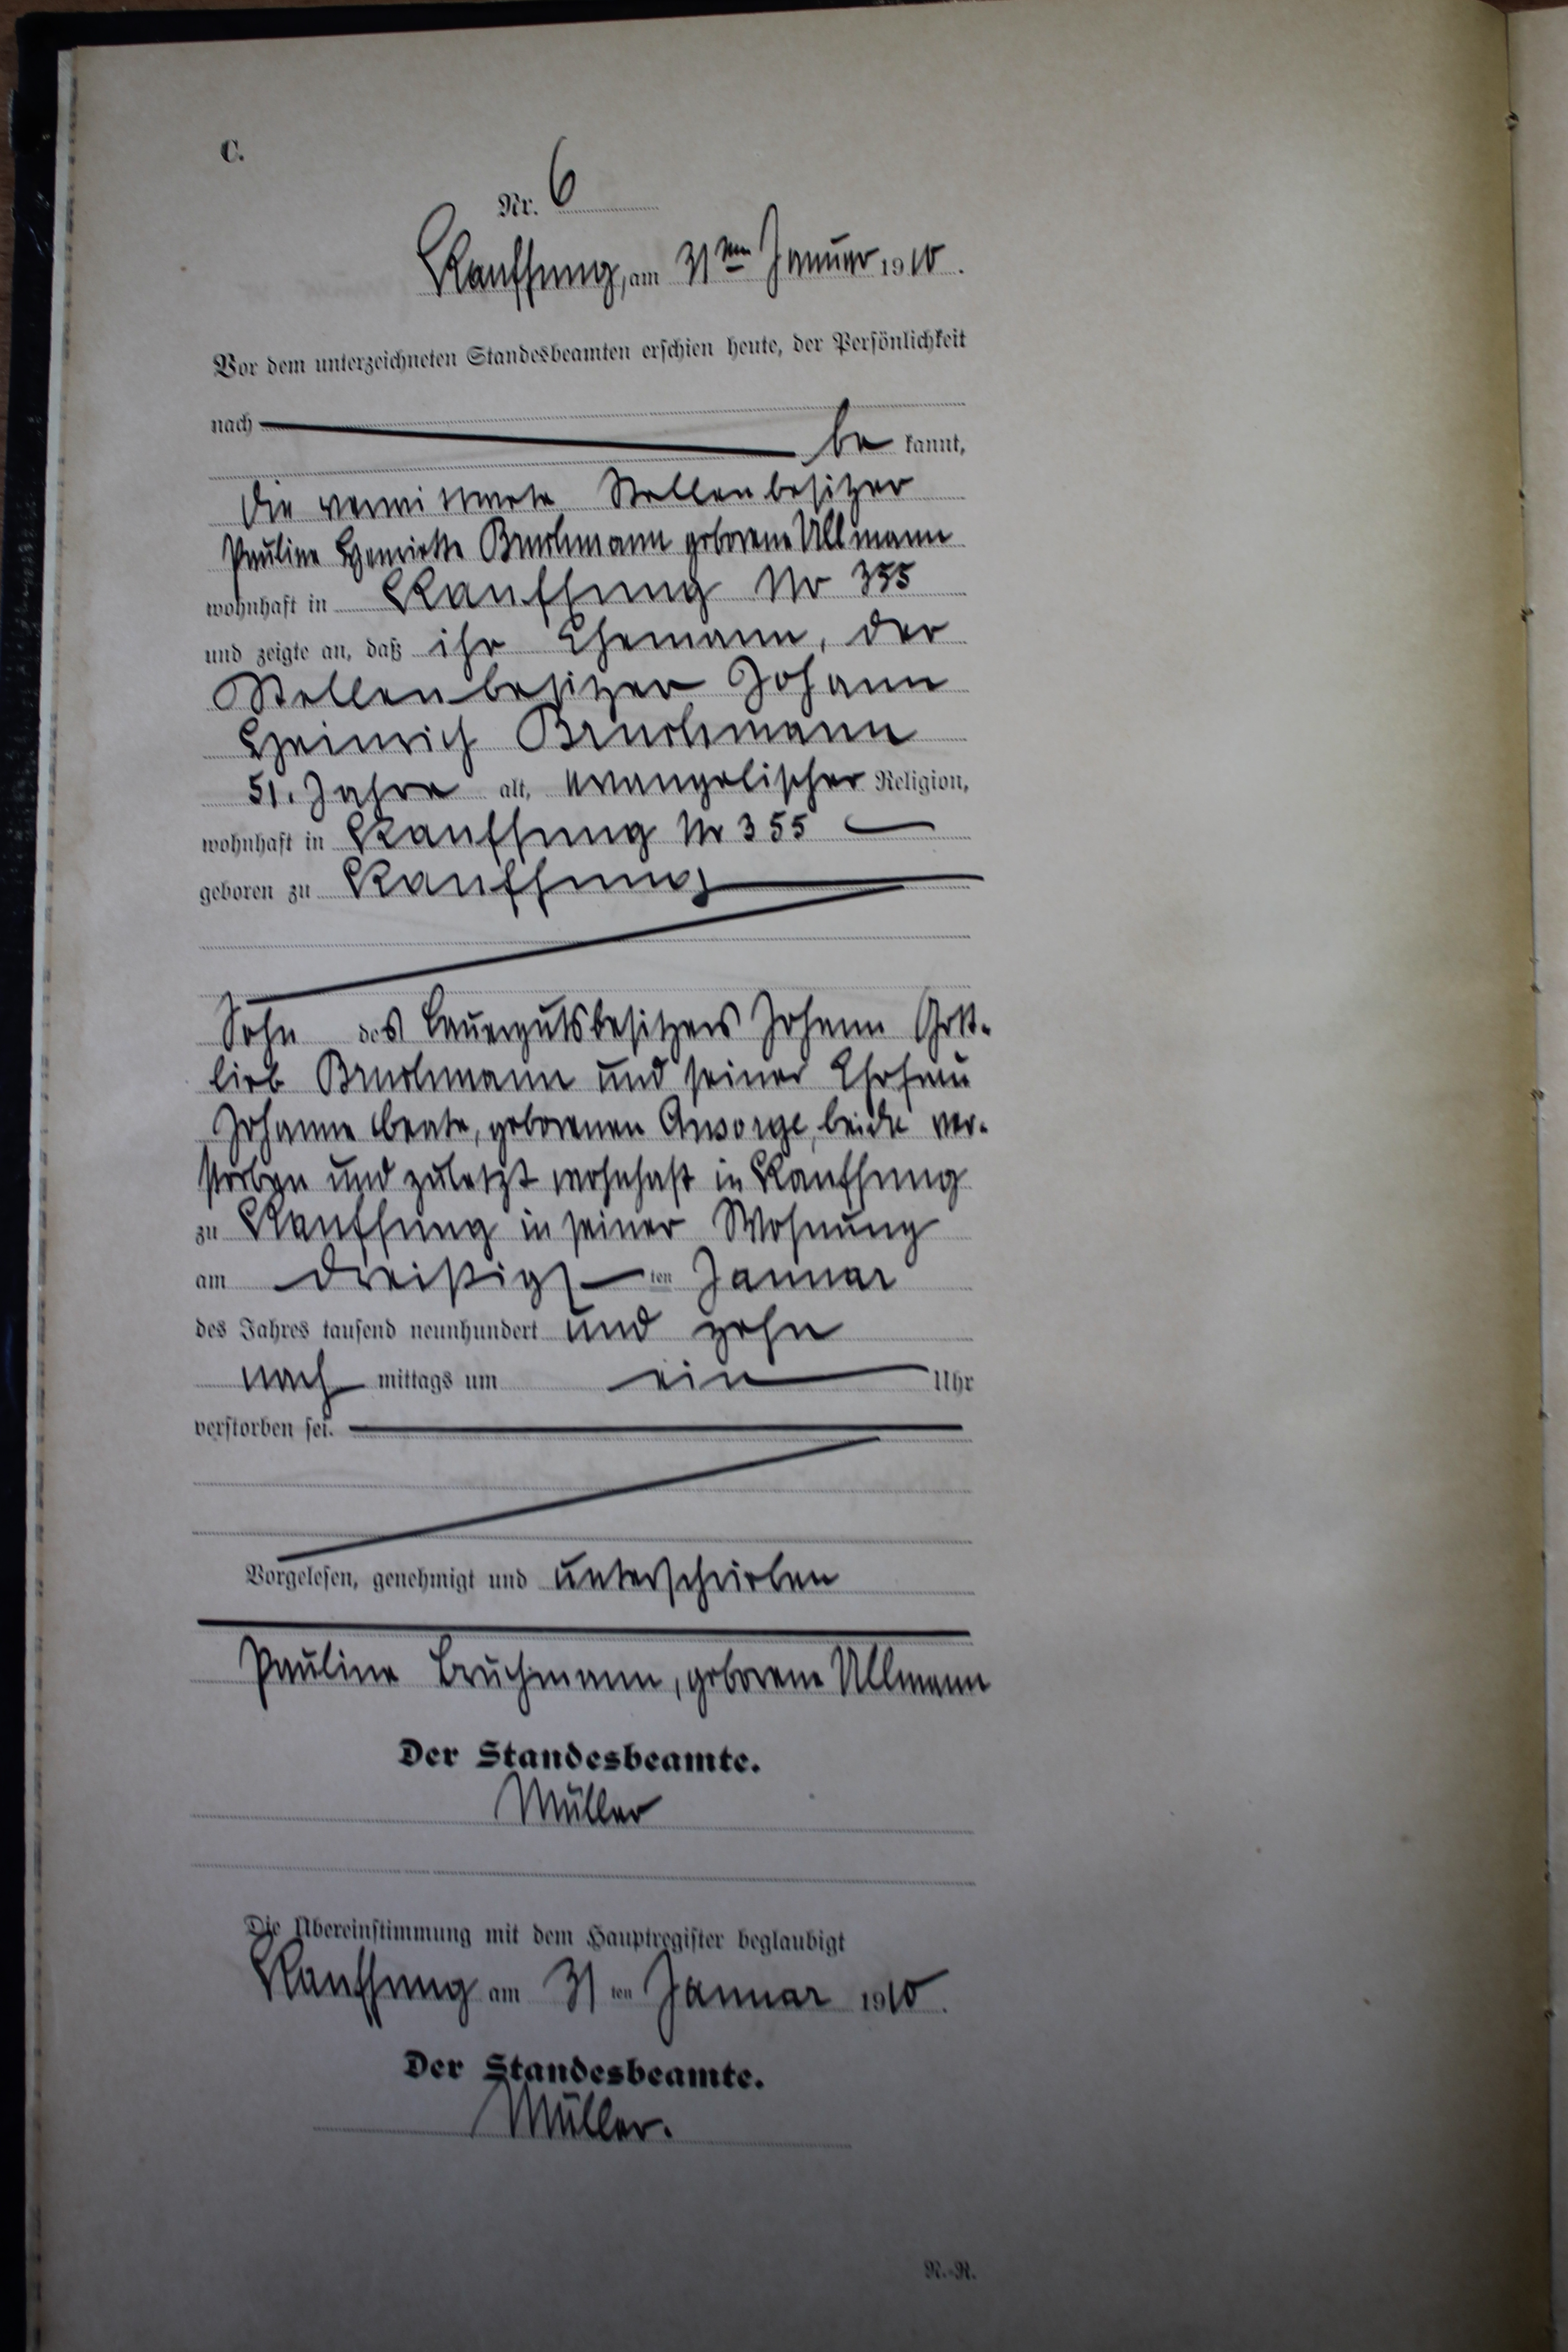 C.
Nr. 6
Kauffung, am 31ten Januar 1910.
Vor dem unterzeichneten Standesbeamten erschien heute, der Persönlichkeit
nach be kannt,
die verwittwete Stellenbesitzer
Pauline Henriette Bruchmann geborene Ullmann
wohnhaft in Kauffung Nr 355
und zeigte an, daß ihr Ehemann, der
Stellenbesitzer Johann
Heinrich Bruchmann
51. Jahre alt, evangelischer Religion,
wohnhaft in Kauffung Nr 355
geboren zu Kauffung
Sohn des Bauergutsbesitzers Johann Gott-
lieb Bruchmann und seiner Ehefrau
Johanne Beate, geborenen Ansorge, beide ver-
storben und zuletzt wohnhaft in Kauffung
zu Kauffung in seiner Wohnung
am dreißigs ten Januar
des Jahres tausend neunhundert und zehn
nach mittags um ein Uhr
verstorben sei.
Vorgelesen, genehmigt und unterschrieben
Pauline Bruchmann, geborene Ullmann
Der Standesbeamte.
Müller
Die Übereinstimmung mit dem Hauptregister beglaubigt
Kauffung am 31 ten Januar 1910.
Der Standesbeamte.
Müller.
N.-R.